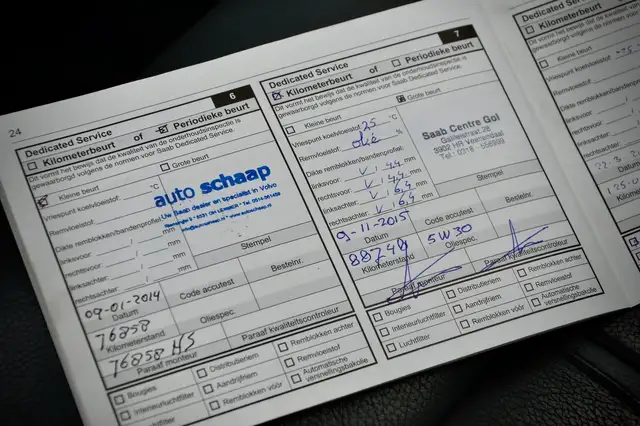 24
6
Dedicated Service
Kilometerbeurt of Periodieke beurt
Dit vormt het bewijs dat de kwaliteit van de onderhoudsinspectie is
gewaarborgd volgens de normen voor Saab Dedicated Service.
Kleine beurt Grote beurt
Vriespunt koelvloeistof °C
Remvloeistof %
Dikte remblokken/bandenprofiel:
linksvoor: / mm
rechtsvoor: / mm
linksachter: / mm
rechtsachter: / mm
auto schaap
Uw Saab dealer en specialist in Volvo
Stempel
09-01-2014
Datum Code accutest Bestelnr.
76858
Kilometerstand Oliespec.
76858 HS
Paraaf monteur Paraaf kwaliteitscontroleur
Bougies Distributieriem Remblokken achter
Interieurluchtfilter Aandrijfriem Remvloeistof
Luchtfilter Remblokken vóór Automatische versnellingsbakolie
7
Dedicated Service
Kilometerbeurt of Periodieke beurt
Dit vormt het bewijs dat de kwaliteit van de onderhoudsinspectie is
gewaarborgd volgens de normen voor Saab Dedicated Service.
Kleine beurt Grote beurt
Vriespunt koelvloeistof 25 °C
Remvloeistof %
Dikte remblokken/bandenprofiel:
linksvoor: mm
rechtsvoor: mm
linksachter: mm
rechtsachter: mm
Saab Centre Gol
Galileistraat 28
3902 HR Veenendaal
Stempel
9-11-2015
Datum Code accutest Bestelnr.
88749 5W30
Kilometerstand Oliespec.
Paraaf monteur Paraaf kwaliteitscontroleur
Bougies Distributieriem Remblokken achter
Interieurluchtfilter Aandrijfriem Remvloeistof
Luchtfilter Remblokken vóór Automatische versnellingsbakolie
Dedicated Service
Kilometerbeurt
Kleine beurt
Vriespunt koelvloeistof
Remvloeistof
Dikte remblokken/
linksvoor:
rechtsvoor:
linksachter:
rechtsachter:
Datum
Kilometerstand
Paraaf